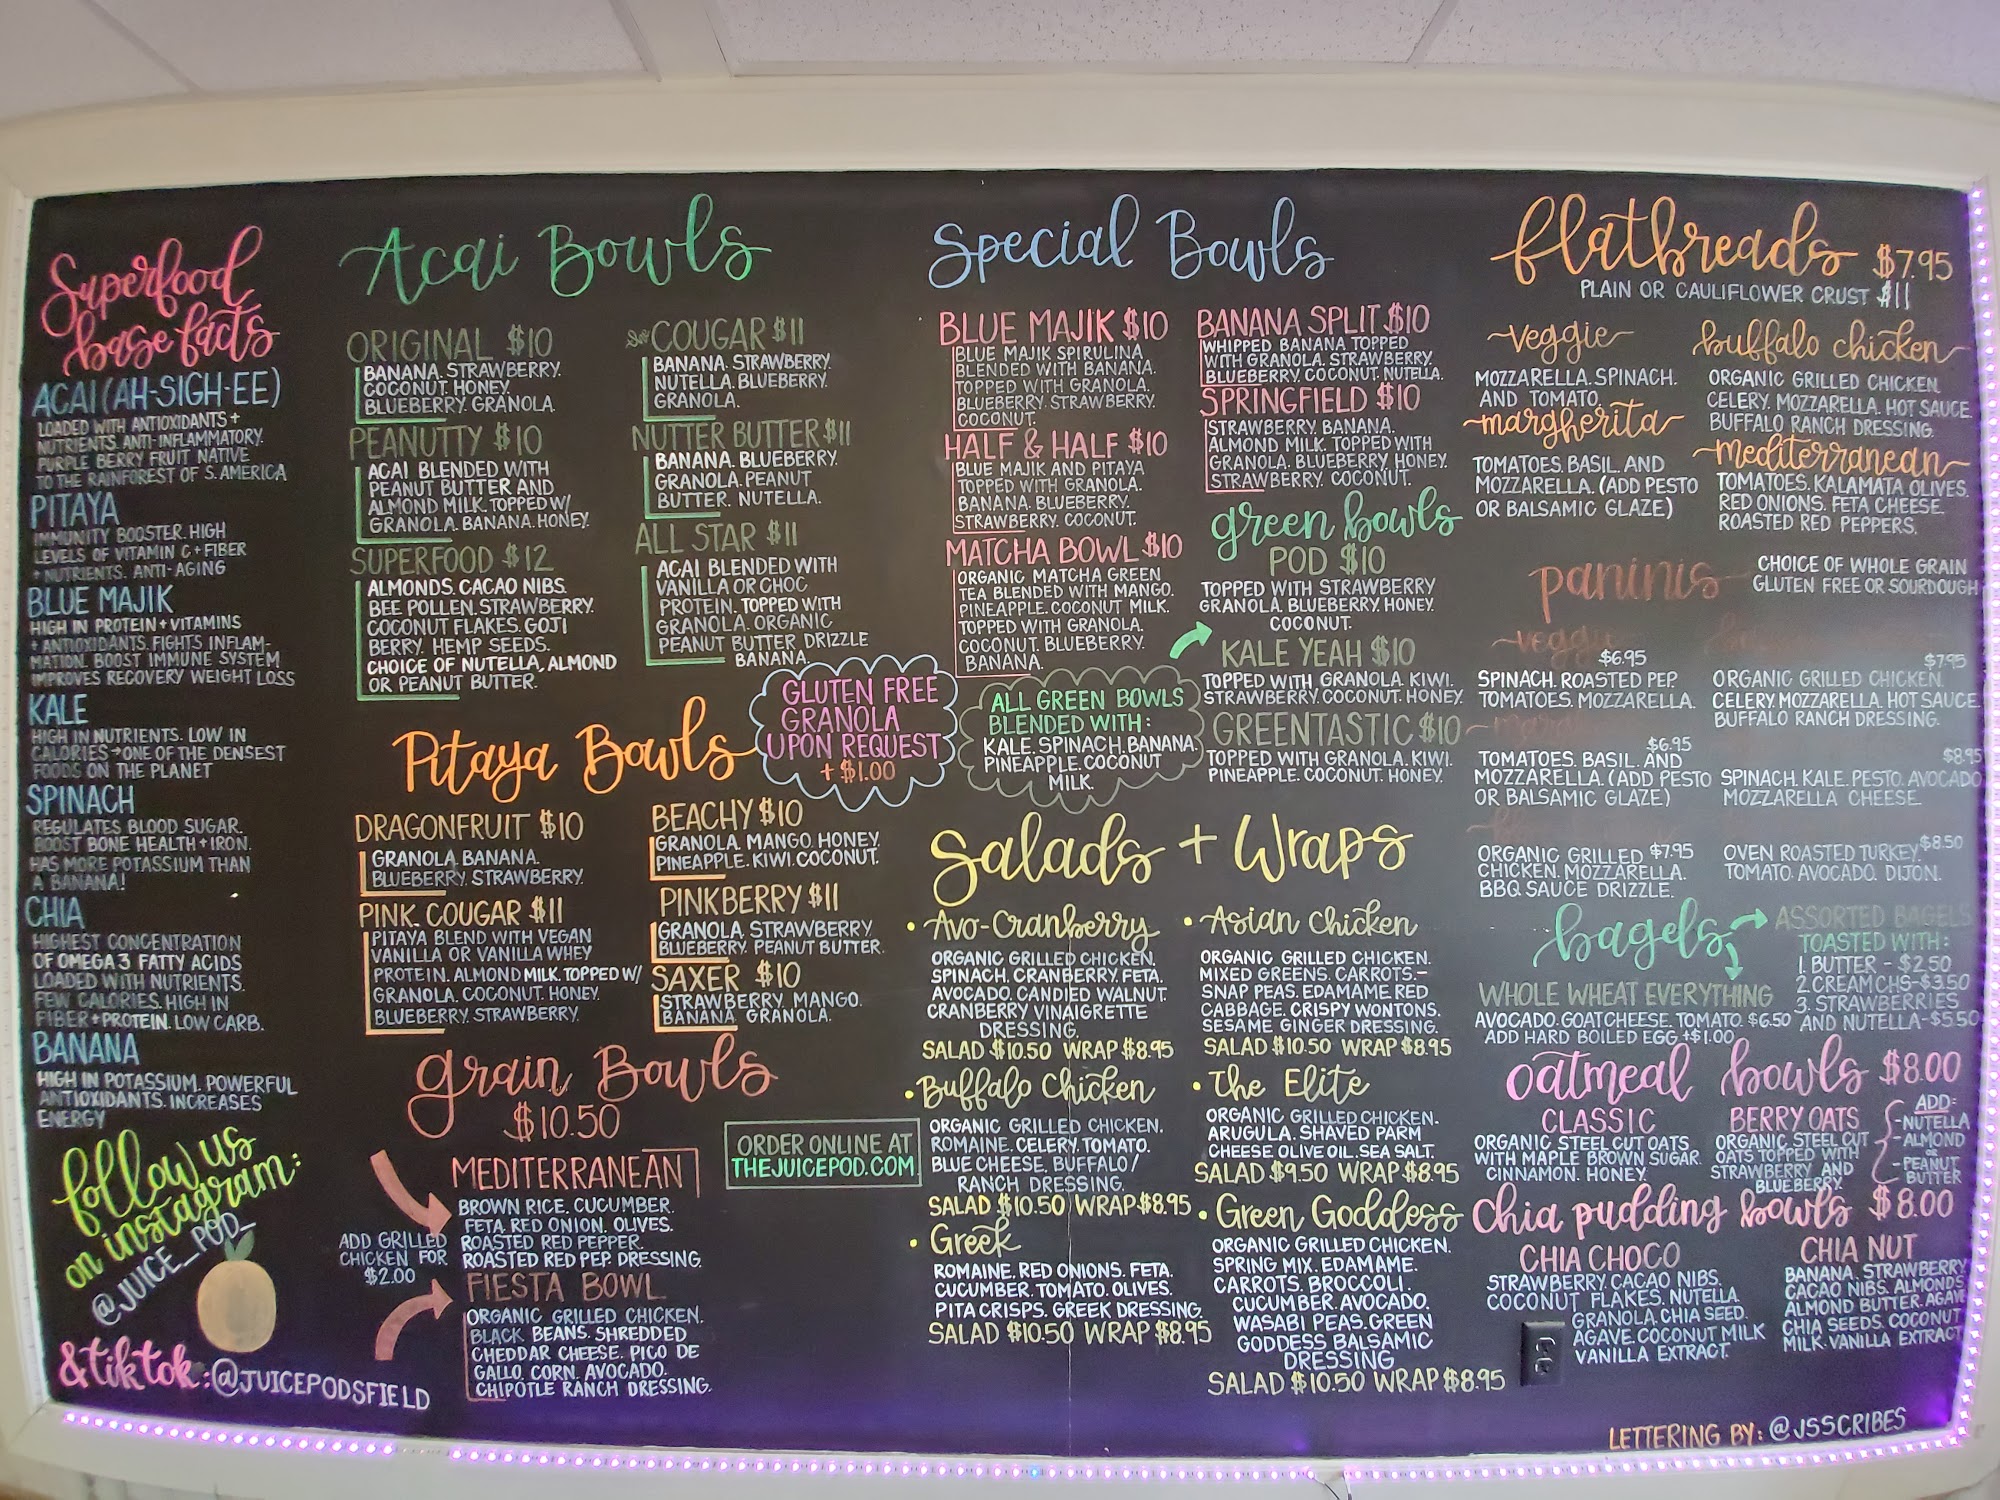 Superfood
base facts
ACAI (AH-SIGH-EE)
LOADED WITH ANTIOXIDANTS +
NUTRIENTS. ANTI-INFLAMMATORY.
PURPLE BERRY FRUIT NATIVE
TO THE RAINFOREST OF S. AMERICA
PITAYA
IMMUNITY BOOSTER. HIGH
LEVELS OF VITAMIN C + FIBER
+ NUTRIENTS. ANTI-AGING
BLUE MAJIK
HIGH IN PROTEIN + VITAMINS
+ ANTIOXIDANTS. FIGHTS INFLAM-
MATION. BOOST IMMUNE SYSTEM
IMPROVES RECOVERY WEIGHT LOSS
KALE
HIGH IN NUTRIENTS. LOW IN
CALORIES → ONE OF THE DENSEST
FOODS ON THE PLANET
SPINACH
REGULATES BLOOD SUGAR.
BOOST BONE HEALTH + IRON.
HAS MORE POTASSIUM THAN
A BANANA!
CHIA
HIGHEST CONCENTRATION
OF OMEGA 3 FATTY ACIDS
LOADED WITH NUTRIENTS.
FEW CALORIES. HIGH IN
FIBER + PROTEIN. LOW CARB.
BANANA
HIGH IN POTASSIUM. POWERFUL
ANTIOXIDANTS. INCREASES
ENERGY
follow us
on instagram:
@JUICE_POD_
& tiktok: @JUICEPODSFIELD
Acai Bowls
ORIGINAL $10
BANANA. STRAWBERRY.
COCONUT. HONEY.
BLUEBERRY. GRANOLA.
PEANUTTY $10
ACAI BLENDED WITH
PEANUT BUTTER AND
ALMOND MILK. TOPPED W/
GRANOLA. BANANA. HONEY.
SUPERFOOD $12
ALMONDS. CACAO NIBS.
BEE POLLEN. STRAWBERRY.
COCONUT FLAKES. GOJI
BERRY. HEMP SEEDS.
CHOICE OF NUTELLA, ALMOND
OR PEANUT BUTTER.
COUGAR $11
BANANA. STRAWBERRY.
NUTELLA. BLUEBERRY.
GRANOLA.
NUTTER BUTTER $11
BANANA. BLUEBERRY.
GRANOLA. PEANUT
BUTTER. NUTELLA.
ALL STAR $11
ACAI BLENDED WITH
VANILLA OR CHOC
PROTEIN. TOPPED WITH
GRANOLA. ORGANIC
PEANUT BUTTER DRIZZLE
BANANA.
GLUTEN FREE
GRANOLA
UPON REQUEST
+ $1.00
Pitaya Bowls
DRAGONFRUIT $10
GRANOLA. BANANA.
BLUEBERRY. STRAWBERRY.
PINK COUGAR $11
PITAYA BLEND WITH VEGAN
VANILLA OR VANILLA WHEY
PROTEIN. ALMOND MILK. TOPPED W/
GRANOLA. COCONUT. HONEY.
BLUEBERRY. STRAWBERRY.
BEACHY $10
GRANOLA. MANGO. HONEY.
PINEAPPLE. KIWI. COCONUT.
PINKBERRY $11
GRANOLA. STRAWBERRY
BLUEBERRY. PEANUT BUTTER.
SAXER $10
STRAWBERRY. MANGO.
BANANA GRANOLA.
Grain Bowls
$10.50
MEDITERRANEAN
BROWN RICE. CUCUMBER.
FETA. RED ONION. OLIVES.
ROASTED RED PEPPER.
ROASTED RED PEP. DRESSING.
ADD GRILLED
CHICKEN FOR
$2.00
FIESTA BOWL
ORGANIC GRILLED CHICKEN.
BLACK BEANS. SHREDDED
CHEDDAR CHEESE. PICO DE
GALLO. CORN. AVOCADO.
CHIPOTLE RANCH DRESSING.
ORDER ONLINE AT
THEJUICEPOD.COM
Special Bowls
BLUE MAJIK $10
BLUE MAJIK SPIRULINA
BLENDED WITH BANANA.
TOPPED WITH GRANOLA.
BLUEBERRY. STRAWBERRY.
COCONUT.
HALF & HALF $10
BLUE MAJIK AND PITAYA
TOPPED WITH GRANOLA.
BANANA. BLUEBERRY.
STRAWBERRY. COCONUT.
MATCHA BOWL $10
ORGANIC MATCHA GREEN
TEA BLENDED WITH MANGO.
PINEAPPLE. COCONUT MILK.
TOPPED WITH GRANOLA.
COCONUT. BLUEBERRY.
BANANA.
ALL GREEN BOWLS
BLENDED WITH:
KALE. SPINACH. BANANA.
PINEAPPLE. COCONUT
MILK.
BANANA SPLIT $10
WHIPPED BANANA TOPPED
WITH GRANOLA. STRAWBERRY.
BLUEBERRY. COCONUT. NUTELLA.
SPRINGFIELD $10
STRAWBERRY. BANANA.
ALMOND MILK. TOPPED WITH
GRANOLA. BLUEBERRY. HONEY.
STRAWBERRY. COCONUT.
green bowls
POD $10
TOPPED WITH STRAWBERRY
GRANOLA. BLUEBERRY. HONEY.
COCONUT.
KALE YEAH $10
TOPPED WITH GRANOLA. KIWI.
STRAWBERRY. COCONUT. HONEY.
GREENTASTIC $10
TOPPED WITH GRANOLA. KIWI.
PINEAPPLE. COCONUT. HONEY.
Salads + Wraps
• Avo-Cranberry
ORGANIC GRILLED CHICKEN.
SPINACH. CRANBERRY. FETA.
AVOCADO. CANDIED WALNUT.
CRANBERRY VINAIGRETTE
DRESSING.
SALAD $10.50 WRAP $8.95
• Buffalo Chicken
ORGANIC GRILLED CHICKEN.
ROMAINE. CELERY. TOMATO.
BLUE CHEESE. BUFFALO/
RANCH DRESSING.
SALAD $10.50 WRAP $8.95
• Greek
ROMAINE. RED ONIONS. FETA.
CUCUMBER. TOMATO. OLIVES.
PITA CRISPS. GREEK DRESSING.
SALAD $10.50 WRAP $8.95
• Asian Chicken
ORGANIC GRILLED CHICKEN.
MIXED GREENS. CARROTS.-
SNAP PEAS. EDAMAME RED
CABBAGE. CRISPY WONTONS.
SESAME GINGER DRESSING.
SALAD $10.50 WRAP $8.95
• The Elite
ORGANIC GRILLED CHICKEN.
ARUGULA. SHAVED PARM
CHEESE OLIVE OIL. SEA SALT.
SALAD $9.50 WRAP $8.95
• Green Goddess
ORGANIC GRILLED CHICKEN.
SPRING MIX. EDAMAME.
CARROTS. BROCCOLI.
CUCUMBER. AVOCADO.
WASABI PEAS. GREEN
GODDESS BALSAMIC
DRESSING
SALAD $10.50 WRAP $8.95
flatbreads $7.95
PLAIN OR CAULIFLOWER CRUST $11
veggie
MOZZARELLA. SPINACH.
AND TOMATO.
margherita
TOMATOES. BASIL. AND
MOZZARELLA. (ADD PESTO
OR BALSAMIC GLAZE)
buffalo chicken
ORGANIC GRILLED CHICKEN.
CELERY. MOZZARELLA. HOT SAUCE.
BUFFALO RANCH DRESSING.
mediterranean
TOMATOES. KALAMATA OLIVES.
RED ONIONS. FETA CHEESE.
ROASTED RED PEPPERS.
paninis
CHOICE OF WHOLE GRAIN
GLUTEN FREE OR SOURDOUGH
veggie
$6.95
SPINACH. ROASTED PEP.
TOMATOES. MOZZARELLA.
$7.95
ORGANIC GRILLED CHICKEN.
CELERY. MOZZARELLA. HOT SAUCE.
BUFFALO RANCH DRESSING.
$6.95
TOMATOES. BASIL. AND
MOZZARELLA. (ADD PESTO
OR BALSAMIC GLAZE)
$8.95
SPINACH. KALE. PESTO. AVOCADO
MOZZARELLA CHEESE.
ORGANIC GRILLED $7.95
CHICKEN. MOZZARELLA.
BBQ SAUCE DRIZZLE.
OVEN ROASTED TURKEY. $8.50
TOMATO. AVOCADO. DIJON.
bagels
ASSORTED BAGELS
TOASTED WITH:
1. BUTTER - $2.50
2. CREAM CHS-$3.50
3. STRAWBERRIES
AND NUTELLA-$5.50
WHOLE WHEAT EVERYTHING
AVOCADO. GOAT CHEESE. TOMATO. $6.50
ADD HARD BOILED EGG +$1.00
oatmeal bowls $8.00
CLASSIC
ORGANIC STEEL CUT OATS
WITH MAPLE BROWN SUGAR.
CINNAMON. HONEY.
BERRY OATS
ORGANIC STEEL CUT
OATS TOPPED WITH
STRAWBERRY AND
BLUEBERRY.
ADD:
-NUTELLA
-ALMOND
OR
-PEANUT
BUTTER
Chia pudding bowls $8.00
CHIA CHOCO
STRAWBERRY. CACAO NIBS.
COCONUT FLAKES. NUTELLA
GRANOLA. CHIA SEED.
AGAVE. COCONUT MILK
VANILLA EXTRACT.
CHIA NUT
BANANA. STRAWBERRY
CACAO NIBS. ALMONDS
ALMOND BUTTER. AGAVE
CHIA SEEDS. COCONUT
MILK. VANILLA EXTRACT
LETTERING BY: @JSSCRIBES